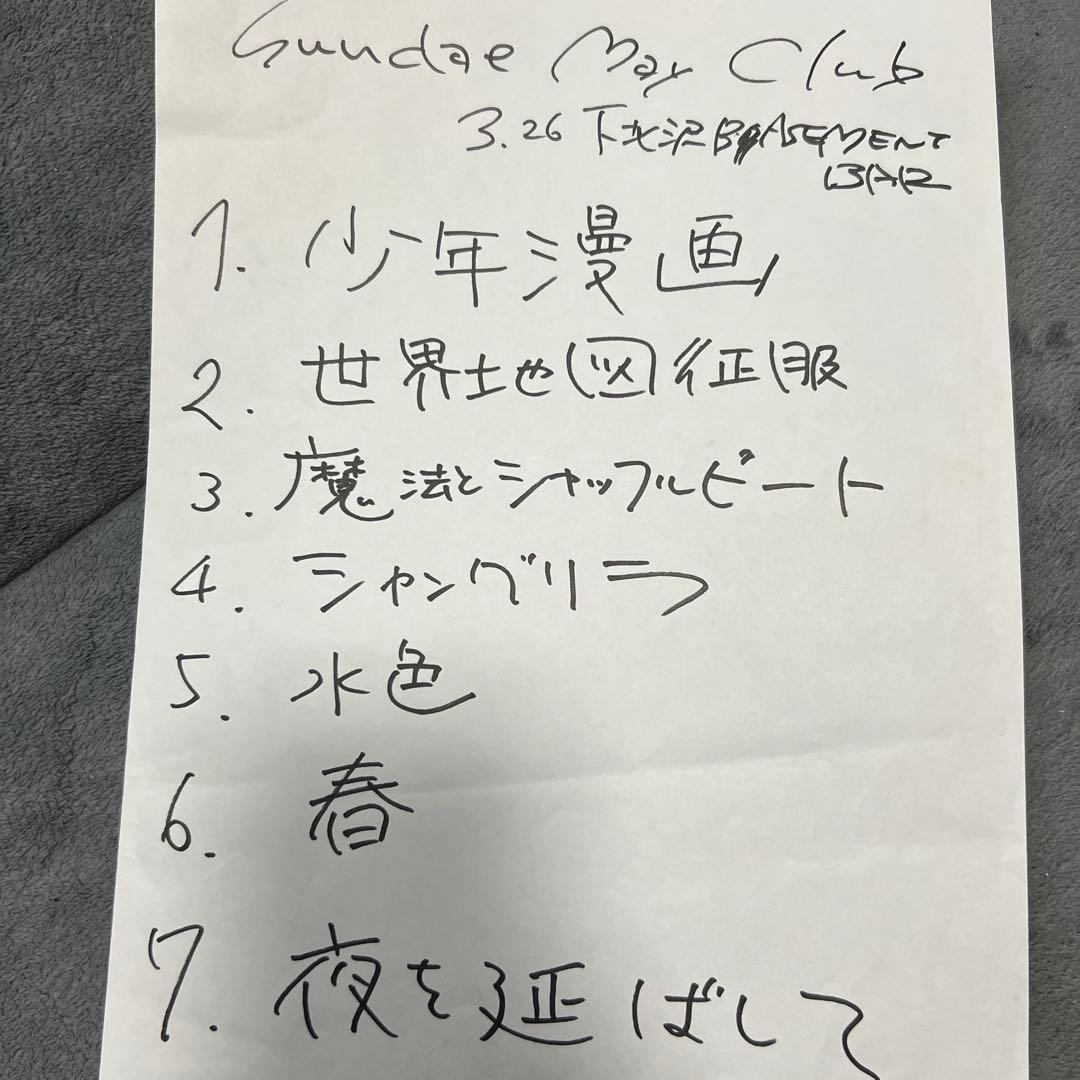 Sundae May Club
3.26 下北沢BASEMENT
BAR
1. 少年漫画
2. 世界地図征服
3. 魔法とシャッフルビート
4. シャングリラ
5. 水色
6. 春
7. 夜を延ばして